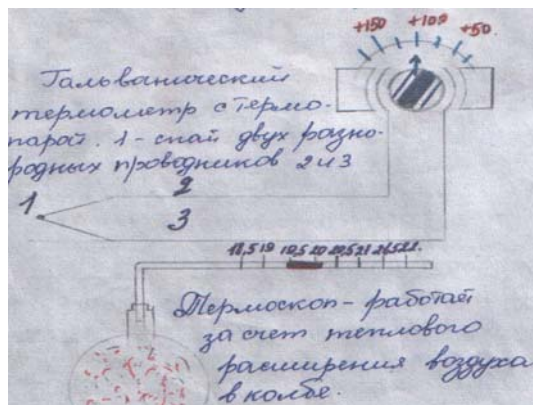 +150 +100 +50
Гальванический
термометр с термо-
парой. 1 - спай двух разно-
родных проводников 2 и 3
1
2
3
18,5 19 19,5 20 20,5 21 21,5 22
Термоскоп - работай
за счет теплового
расширения воздуха
в колбе.